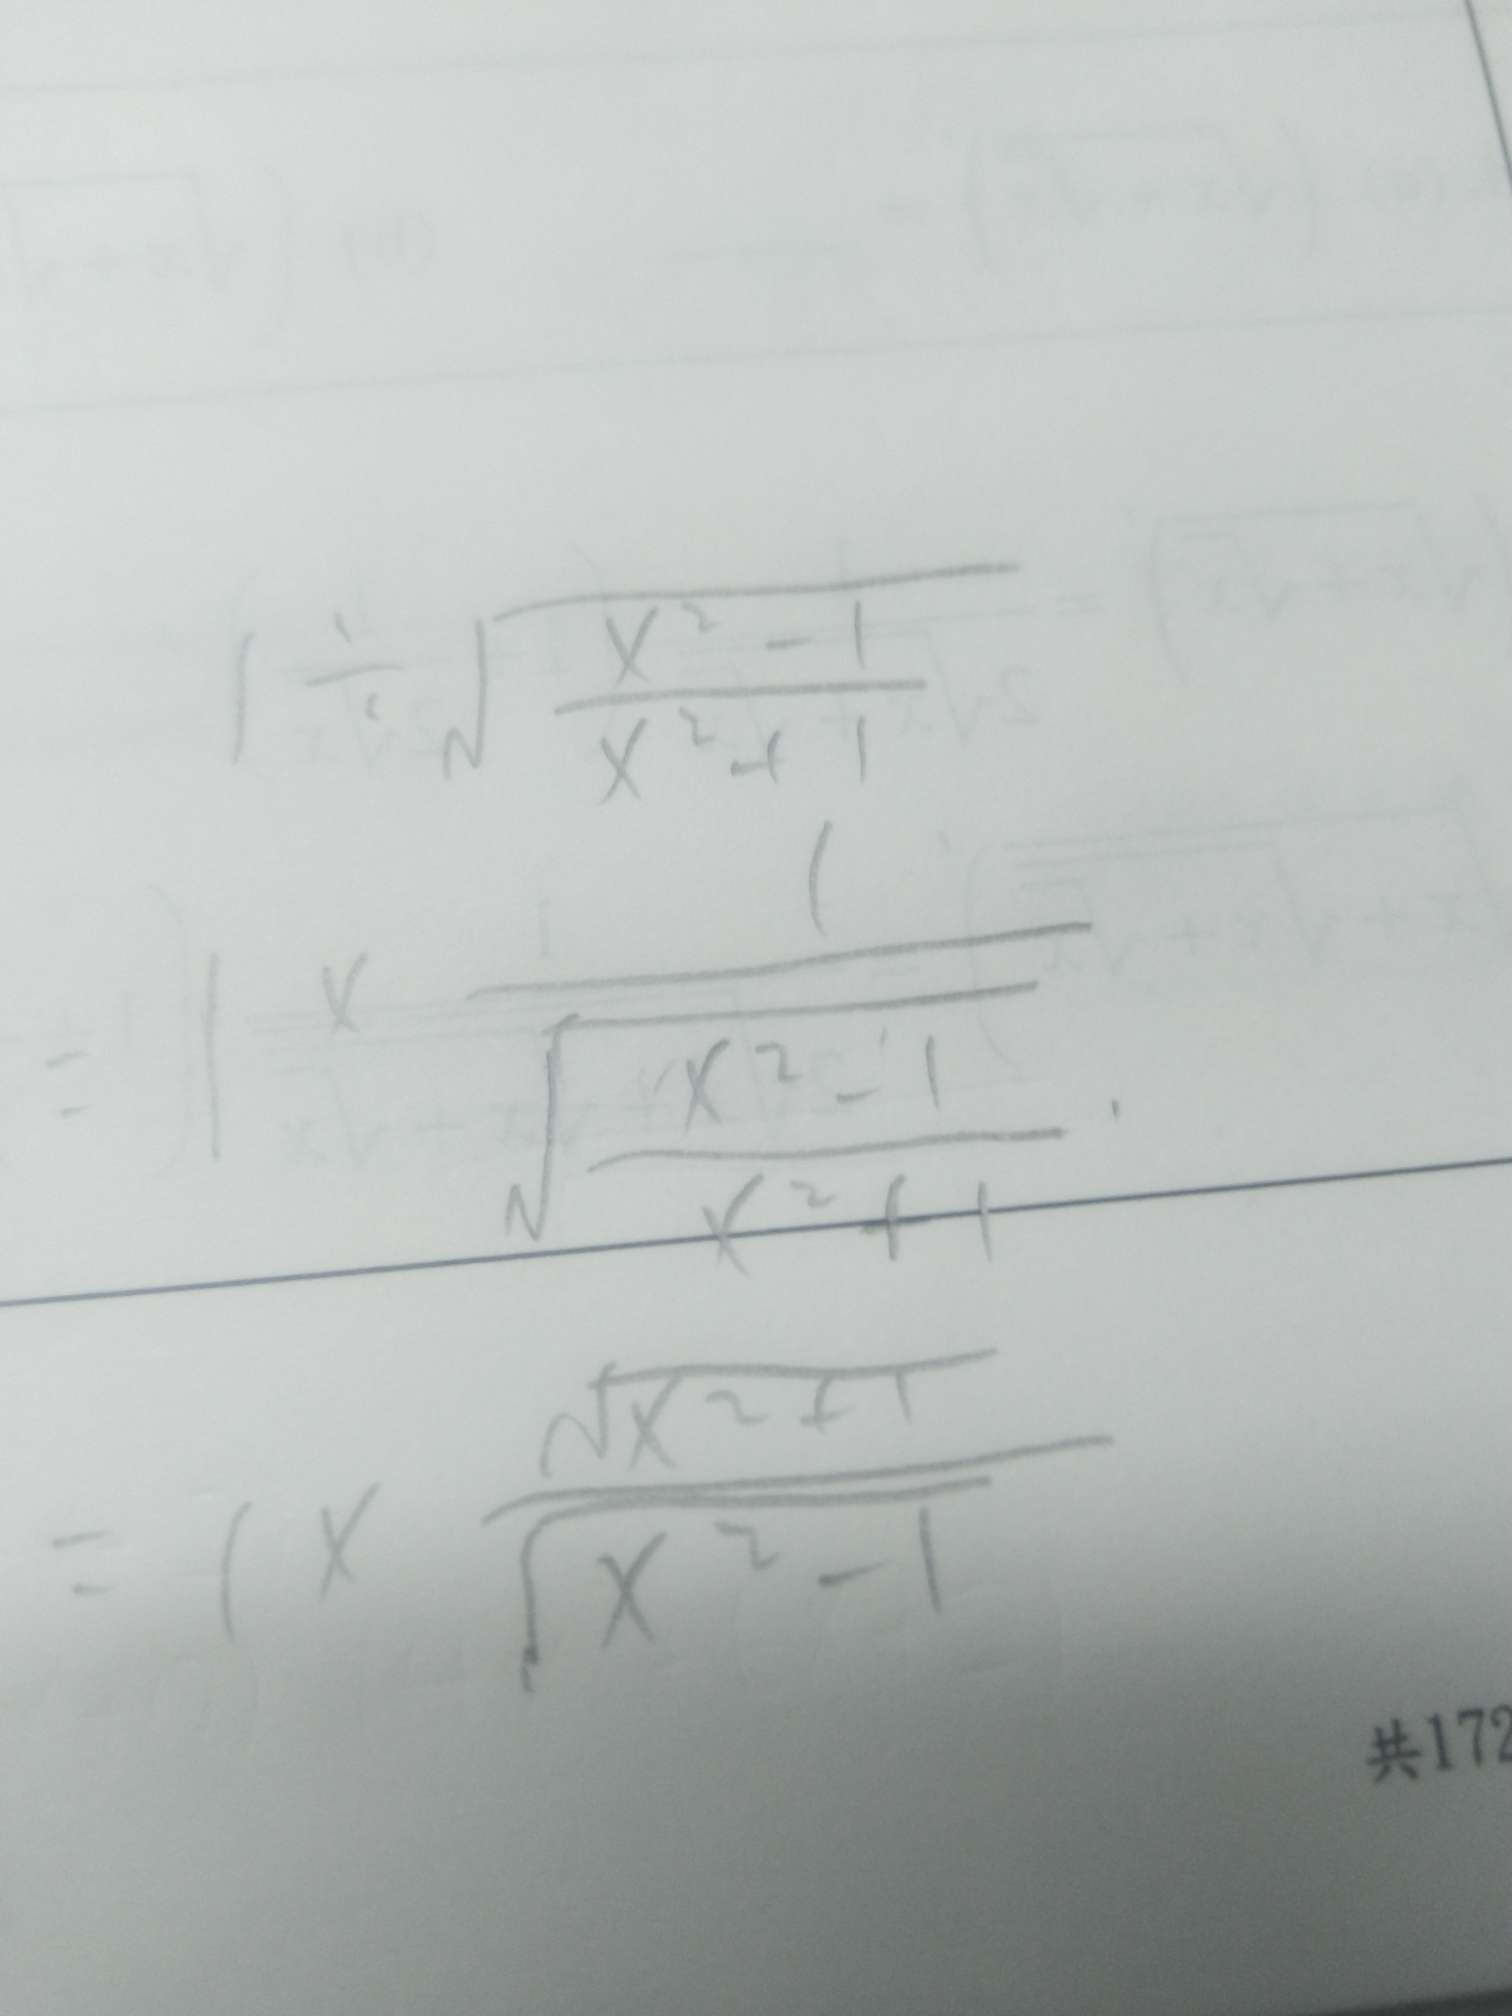 1 ÷ √((x² - 1)/(x² + 1))
= 1 × 1/√((x² - 1)/(x² + 1))
= 1 × √(x² + 1)/√(x² - 1)
共172